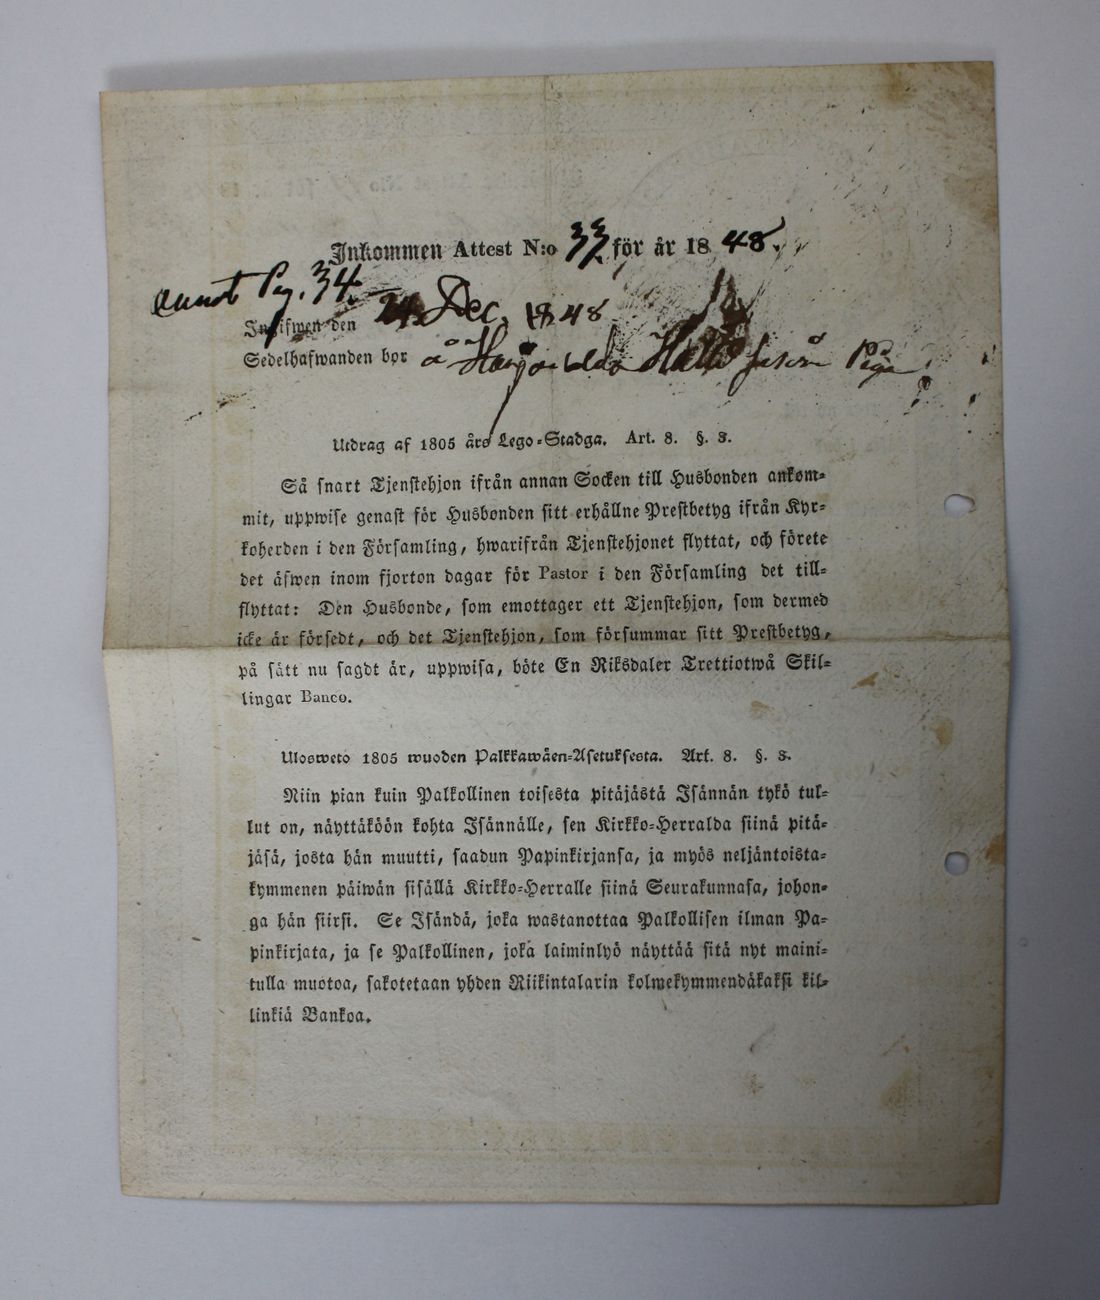 Inkommen Attest N:o 33. för år 1848.
Pg. 34.
Inskrifwen den 24. Dec. 1848
Sedelhafwanden bor å
Utdrag af 1805 års Lego-Stadga. Art. 8. §. 3.
Så snart Tjenstehjon ifrån annan Socken till Husbonden ankom-
mit, uppwise genast för Husbonden sitt erhållne Prestbetyg ifrån Kyr-
koherden i den Församling, hwarifrån Tjenstehjonet flyttat, och förete
det äfwen inom fjorton dagar för Pastor i den Församling det till-
flyttat: Den Husbonde, som emottager ett Tjenstehjon, som dermed
icke är försedt, och det Tjenstehjon, som försummar sitt Prestbetyg,
på sätt nu sagdt är, uppwisa, böte En Riksdaler Trettiotwå Skil-
lingar Banco.
Ulosweto 1805 wuoden Palkkawäen-Asetuksesta. Art. 8. §. 3.
Niin pian kuin Palkollinen toisesta pitäjästä Isännän tykö tul-
lut on, näyttäköön kohta Isännälle, sen Kirkko-Herralda siinä pitä-
jäsä, josta hän muutti, saadun Papinkirjansa, ja myös neljäntoista-
kymmenen päiwän sisällä Kirkko-Herralle siinä Seurakunnasa, johon-
ga hän siirsi. Se Isändä, joka wastanottaa Palkollisen ilman Pa-
pinkirjata, ja se Palkollinen, joka laiminlyö näyttää sitä nyt maini-
tulla muotoa, sakotetaan yhden Riikintalarin kolmekymmendäkaksi kil-
linkiä Bankoa.